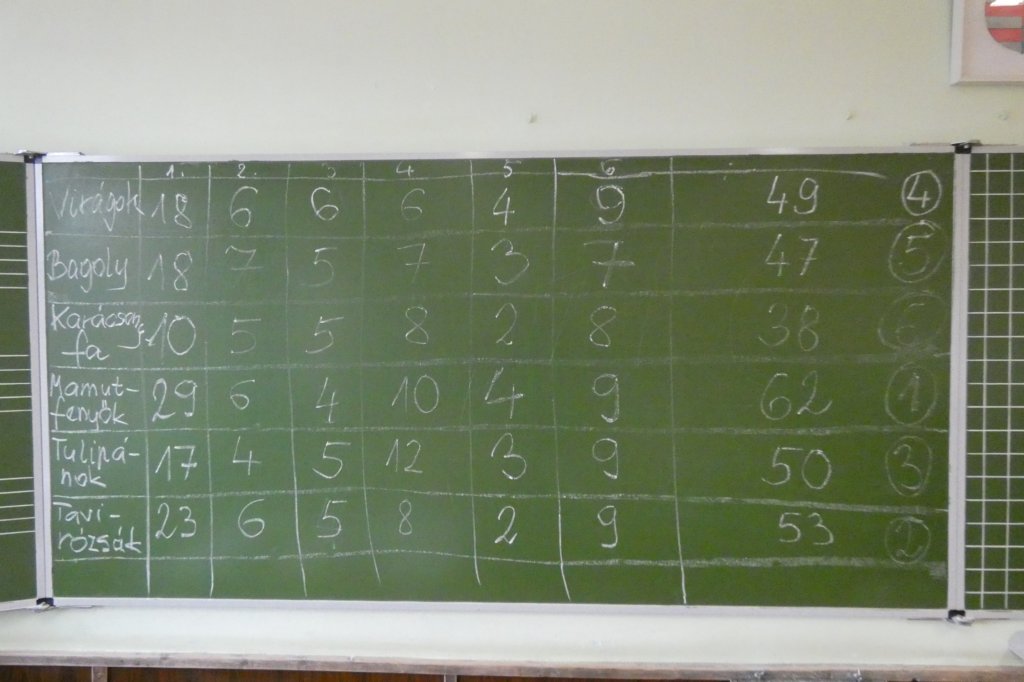 1. 2. 3 4 5 6
Virágok 18 6 6 6 4 9 49 4
Bagoly 18 7 5 7 3 7 47 5
Karácsony-
fa 10 5 5 8 2 8 38 6
Mamut-
fenyők 29 6 4 10 4 9 62 1
Tulipá-
nok 17 4 5 12 3 9 50 3
Tavi-
rózsák 23 6 5 8 2 9 53 2